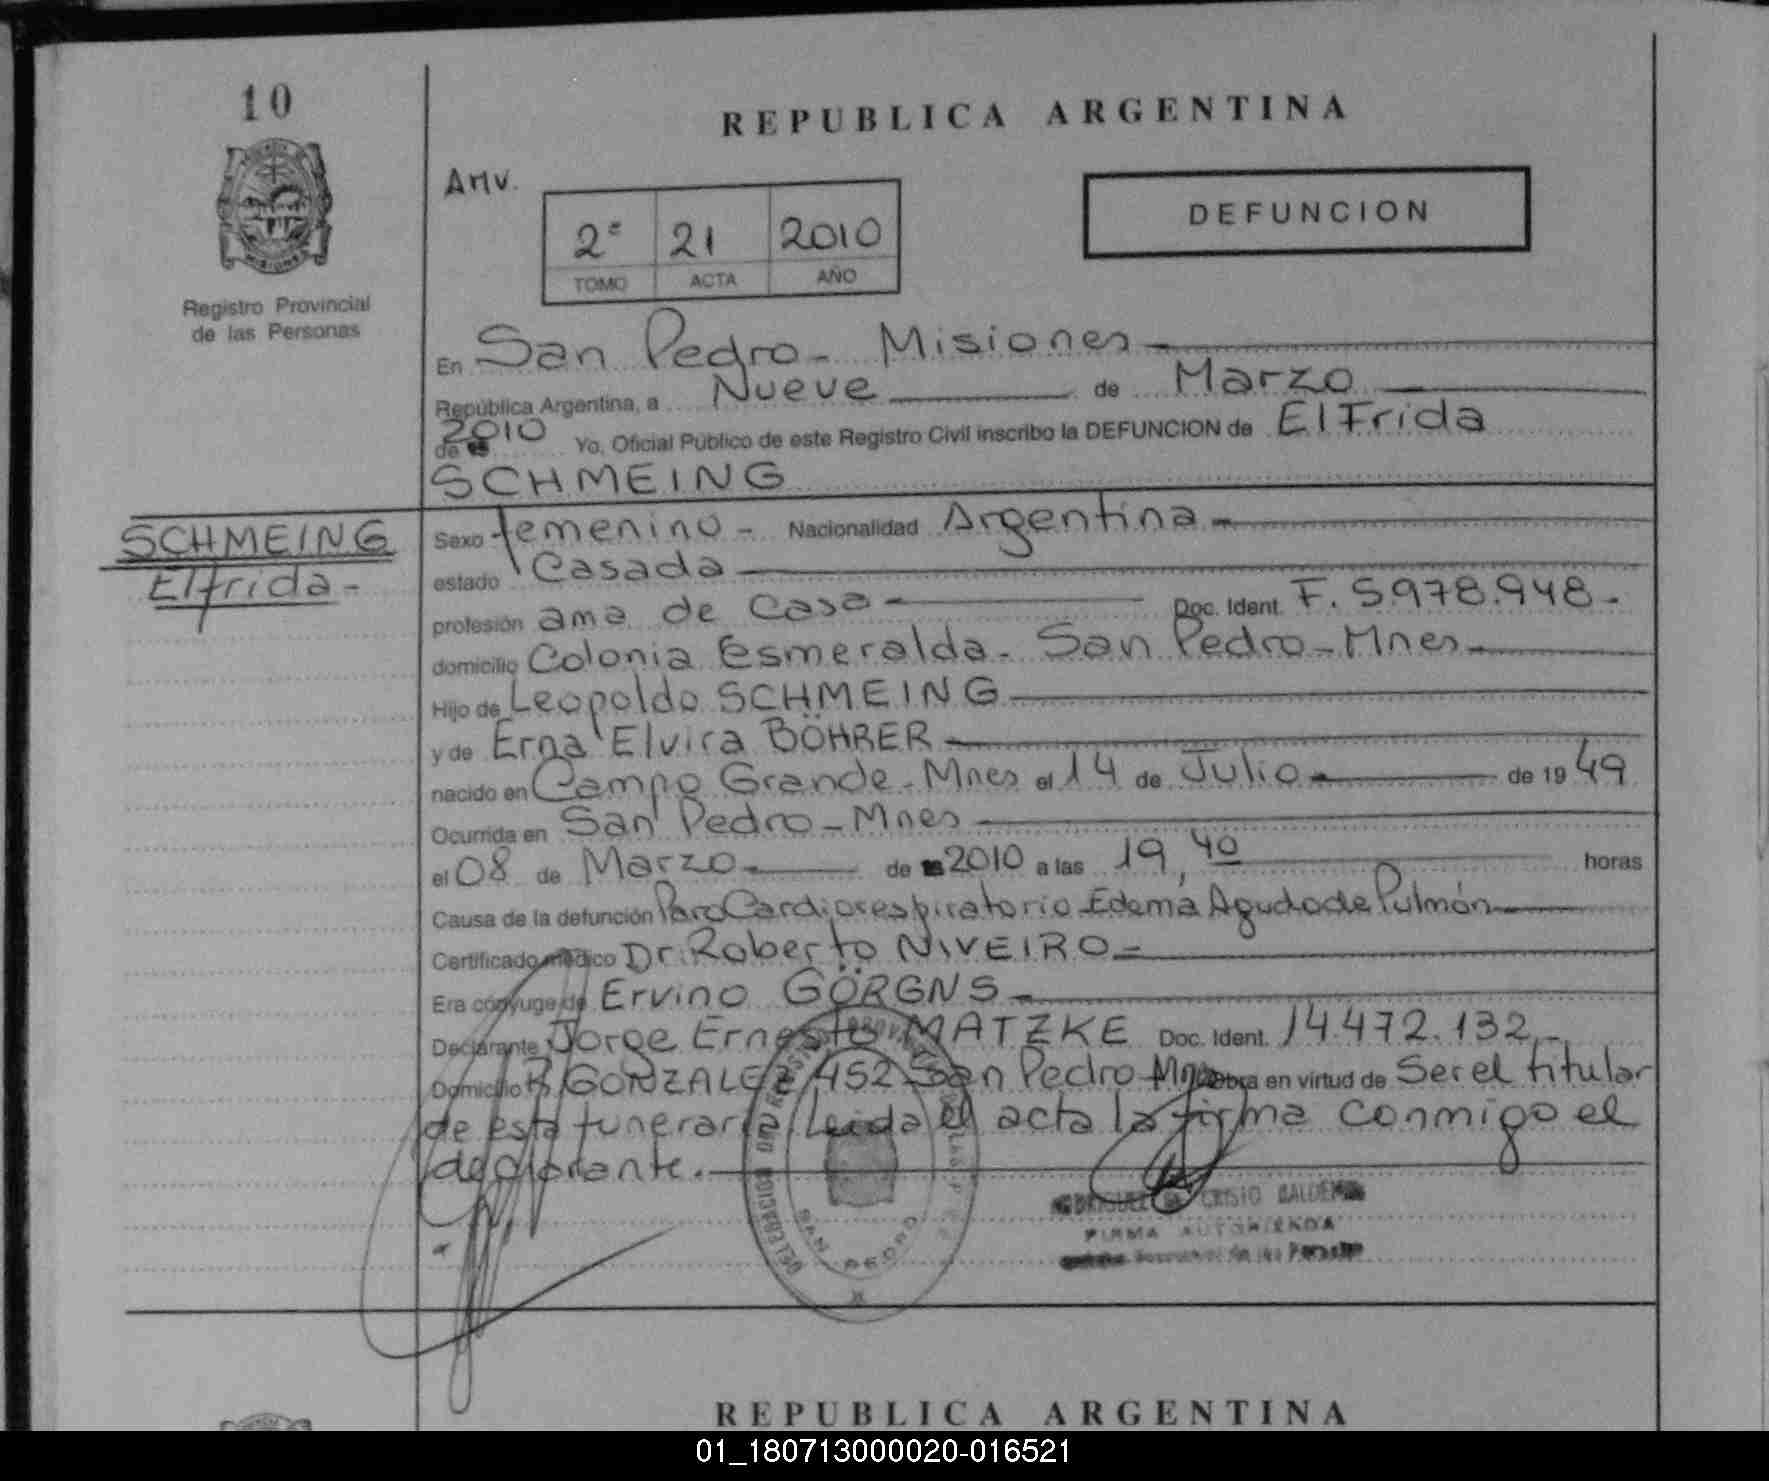 10
REPUBLICA ARGENTINA
Anv.
DEFUNCION
2º 21 2010
TOMO ACTA AÑO
Registro Provincial
de las Personas
En San Pedro - Misiones
República Argentina, a Nueve de Marzo
de 2010 Yo, Oficial Público de este Registro Civil inscribo la DEFUNCION de ElFrida
SCHMEING
SCHMEING
Elfrida -
Sexo femenino - Nacionalidad Argentina -
estado Casada
profesión ama de casa - Doc. Ident. F. 5.978.948.-
domicilio Colonia Esmeralda - San Pedro - Mnes -
Hijo de Leopoldo SCHMEING
y de Erna Elvira BÖHRER
nacido en Campo Grande - Mnes el 14 de Julio - de 19 49
Ocurrida en San Pedro - Mnes
el 08 de Marzo - de 2010 a las 19,40 horas
Causa de la defunción Paro Cardiorespiratorio - Edema Agudo de Pulmón
Certificado médico Dr. Roberto NIVEIRO -
Era cónyuge de Ervino GÖRGNS -
Declarante Jorge Ernesto MATZKE Doc. Ident. 14.472.132.-
Domicilio R. GONZALEZ 452 San Pedro - Mnes Obra en virtud de Ser el titular
de esta funeraria. Leida el acta la firma conmigo el
declarante. -
DELEGACION DEL REGISTRO
SAN PEDRO
FIRMA AUTORIZADA
de las Personas
REPUBLICA ARGENTINA
01_180713000020-016521